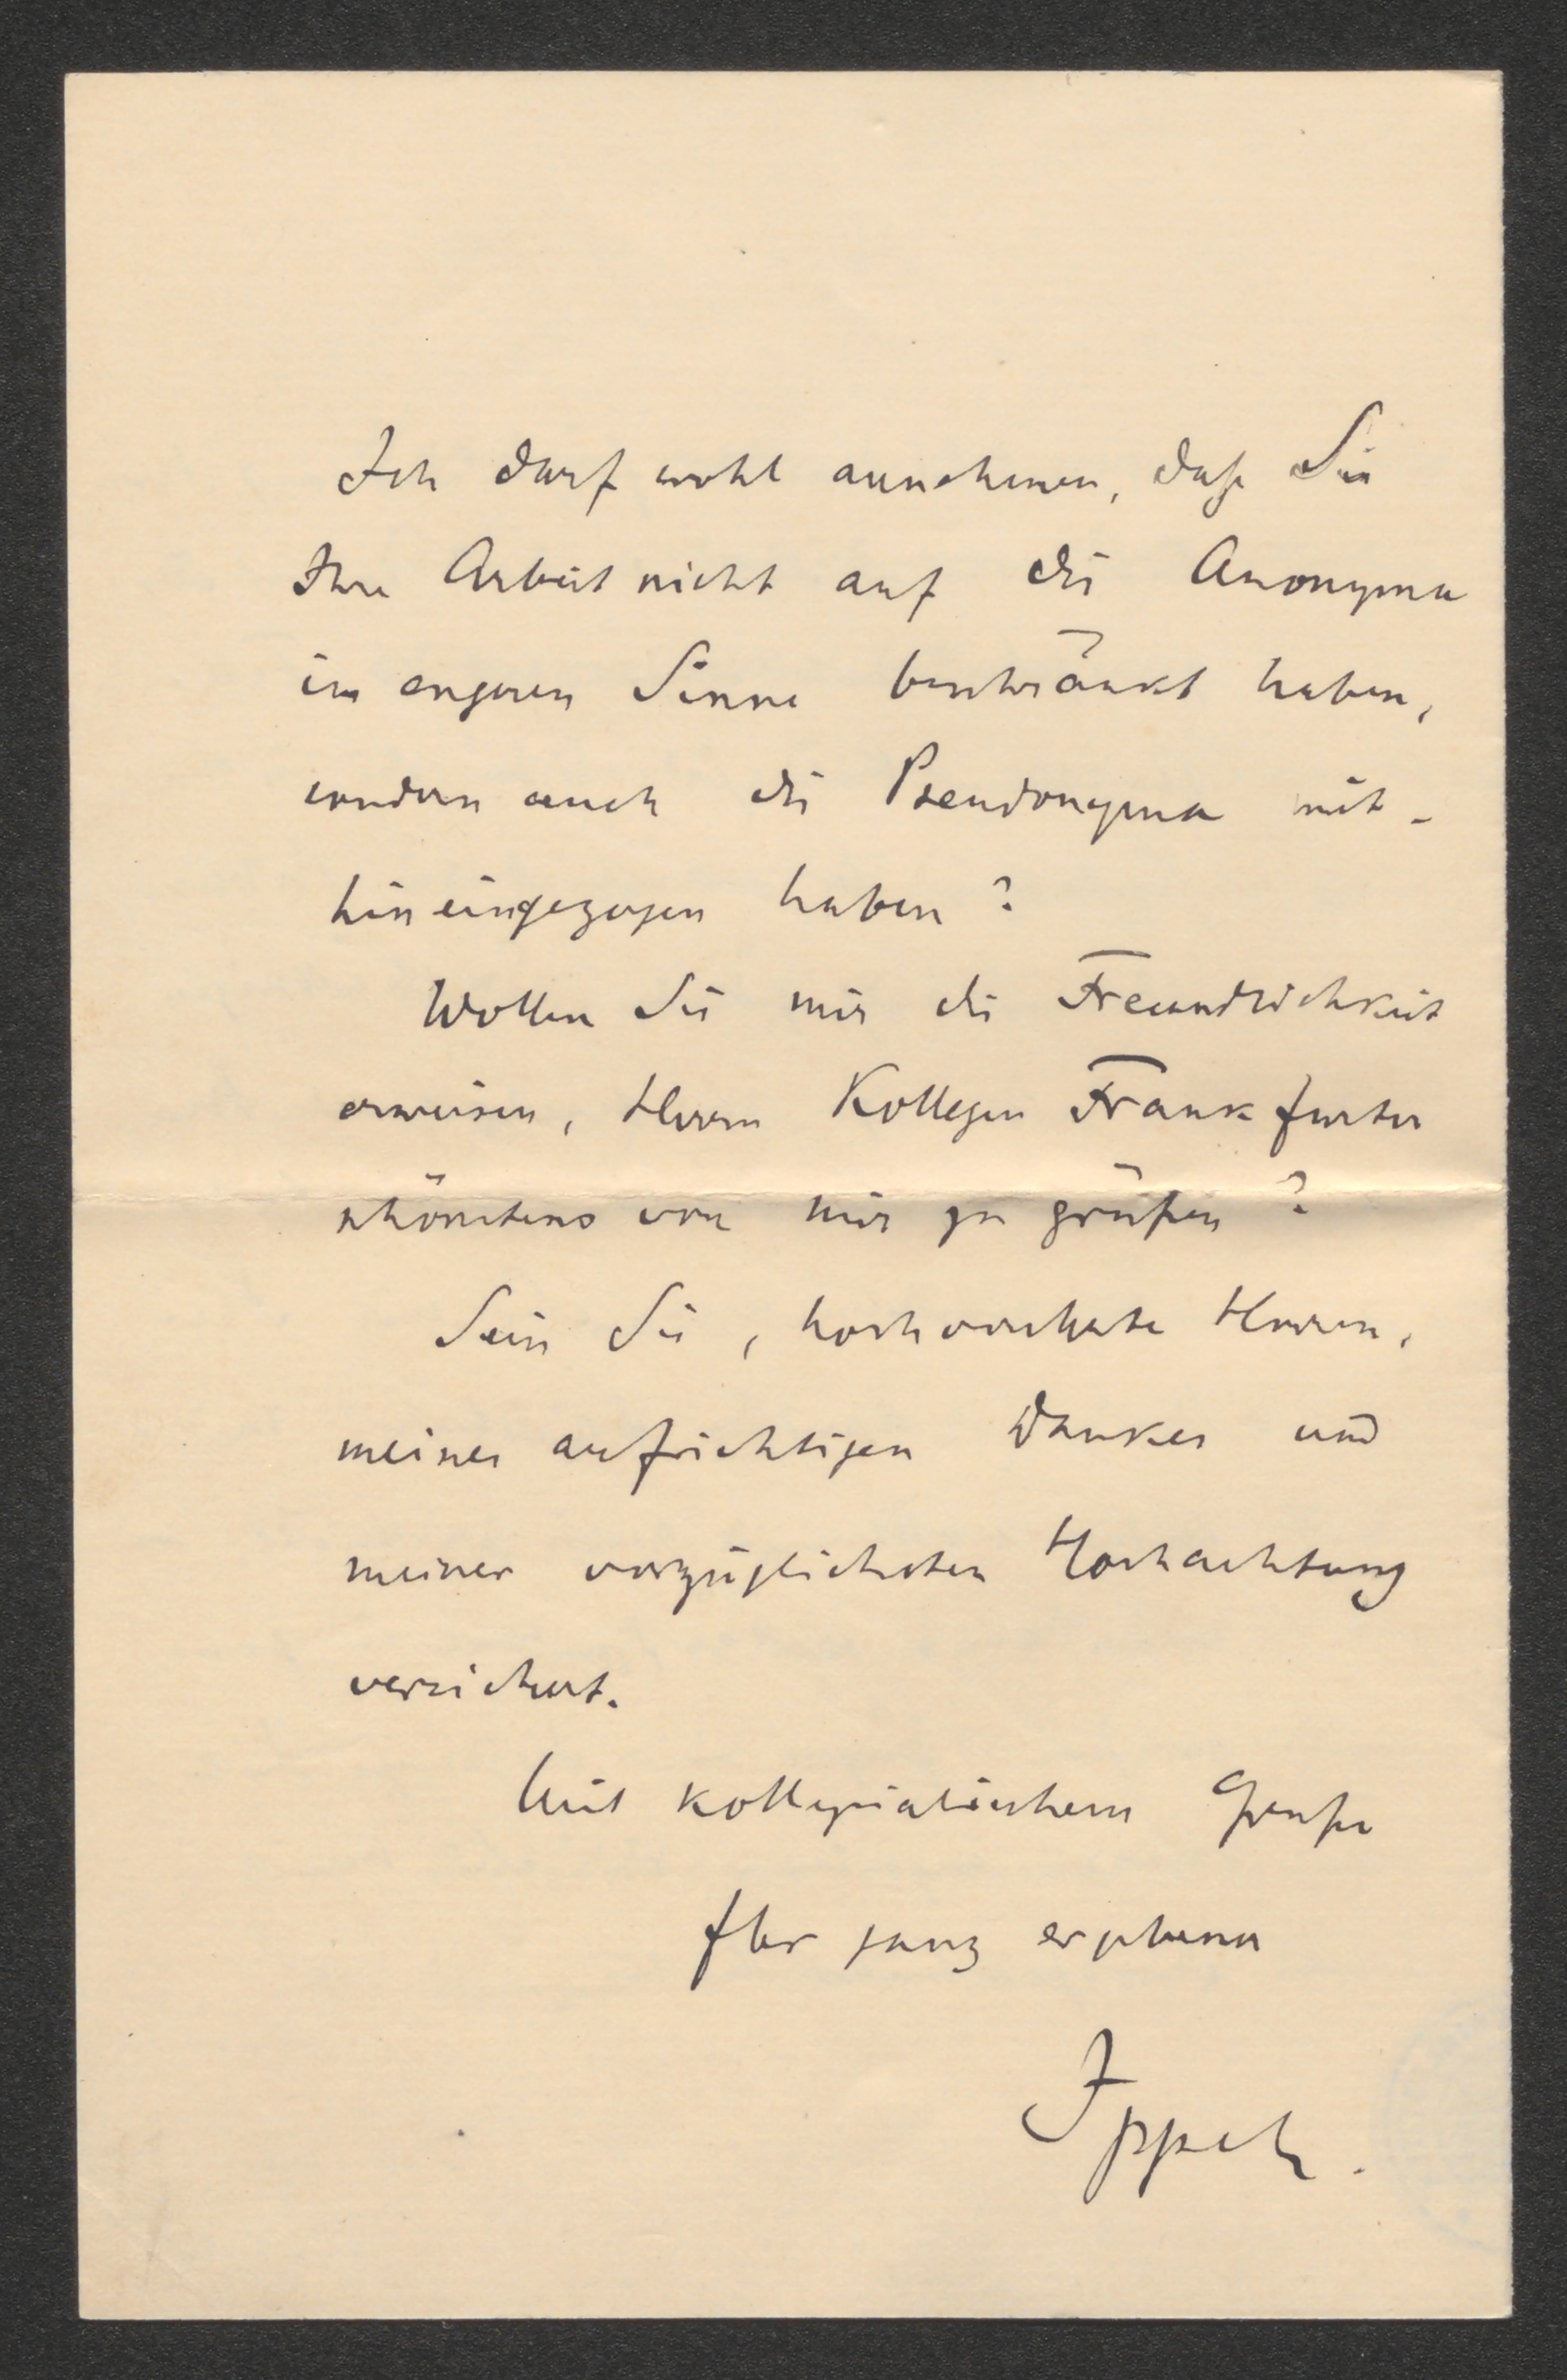 Ich darf wohl annehmen, daß Sie
Ihre Arbeit nicht auf die Anonyma
im engeren Sinne beschränkt haben,
sondern auch die Pseudonyma mit-
hineingezogen haben?
Wollen Sie mir die Freundlichkeit
erweisen, Herrn Kollegen Frankfurter
schönstens von mir zu grüßen?
Seien Sie, hochverehrte Herren,
meines aufrichtigen Dankes und
meiner vorzüglichsten Hochachtung
versichert.
Mit kollegialischem Gruße
Ihr ganz ergebener
Ippel.